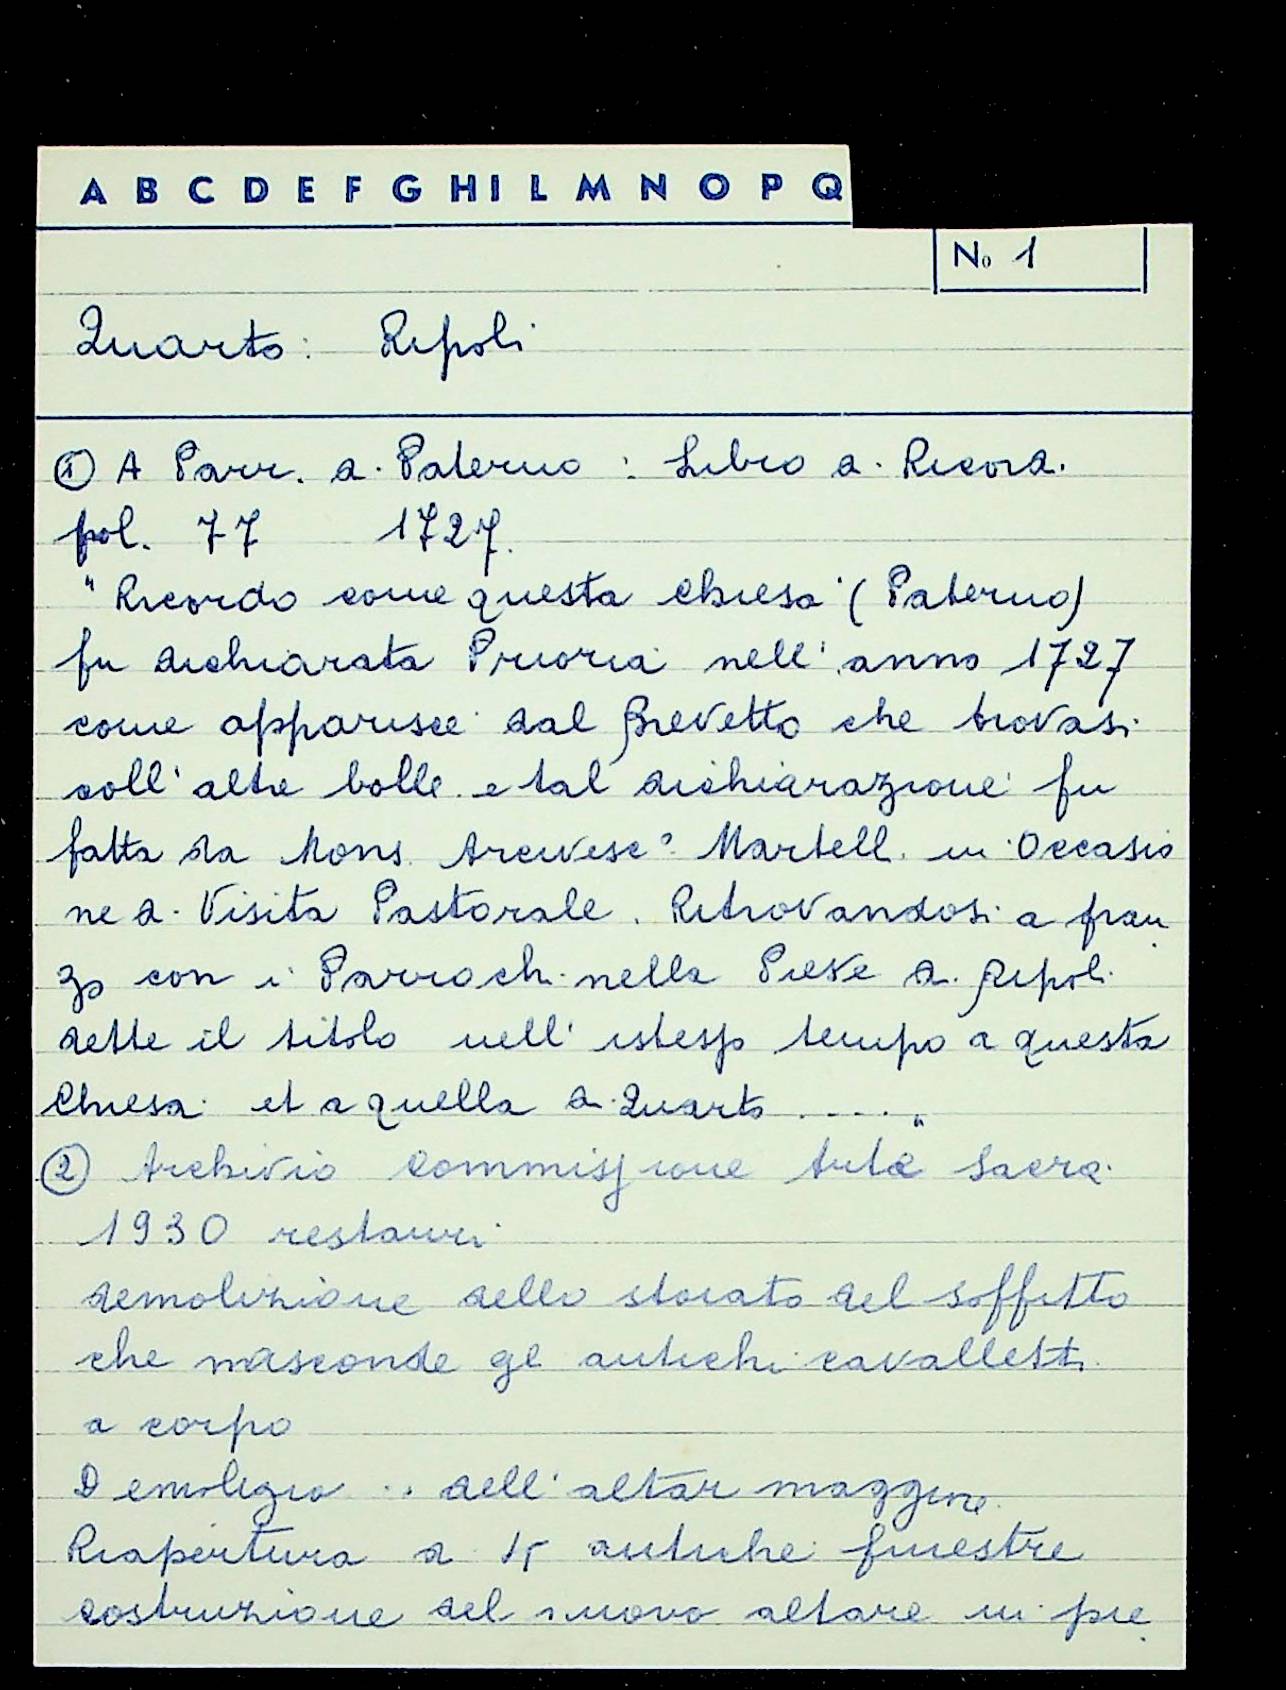 A B C D E F G H I L M N O P Q
No 1
Quarto: Ripoli
① A Parr. d. Paterno : Libro d. Ricord.
fol. 77 1727.
" Ricordo come questa Chiesa (Paterno)
fu dichiarata Prioria nell' anno 1727
come apparisce dal Brevetto che trovasi
coll' altre bolle e tal dichiarazione fu
fatta da Mons. Arcivesc° Martell. in Occasio
ne d. Visita Pastorale. Ritrovandosi a pran
zo con i Parrochi nella Pieve d. Ripoli
dette il titolo nell' istesso tempo a questa
Chiesa et a quella d. Quarto ..... "
② Archivio Commissione Arte Sacra
1930 restauri
demolizione dello stoiato del soffitto
che nasconde gl antichi cavalletti
a corpo
Demolizio .. dell' altar maggiore
Riapertura d antiche finestre
costruzione del nuovo altare in pie